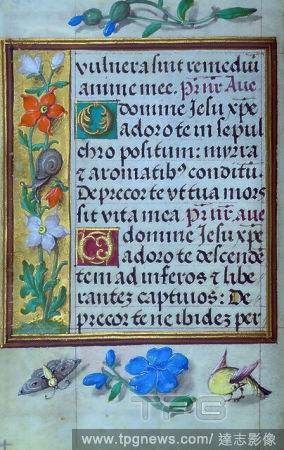 vulnera sint remediū
anime mee. Pr̄ nr̄ Aue
O domine Jesu xp̄e
adoro te in sepul
chro positum: mirra
⁊ aromatibꝰ conditū.
Deprecor te vt tua mors
sit vita mea Pr̄ nr̄ aue
O domine Jesu xp̄e
adoro te descende
tem ad inferos ⁊ libe
rantez captiuos: De
precor te ne ibidez per
TPG
www.tpgnews.com/ 達志影像